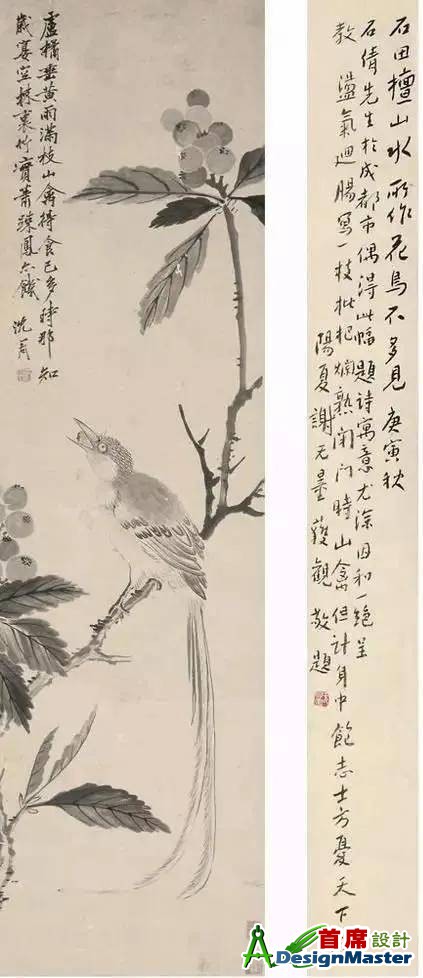 盧橘垂黃雨滿枝山禽得食已多時那知
歲宴空林裏竹實蕭疎鳳亦饑 沈周
石田擅山水所作花鳥不多見 庚寅秋
石倩先生於成都市偶得此幅題詩寓意尤深因和一絕呈
教 盪氣迴腸寫一枝枇杷爛熟閉門時山禽但計身中飽志士方憂天下
陽夏謝无量獲觀敬題
首席設計
ADesignMaster